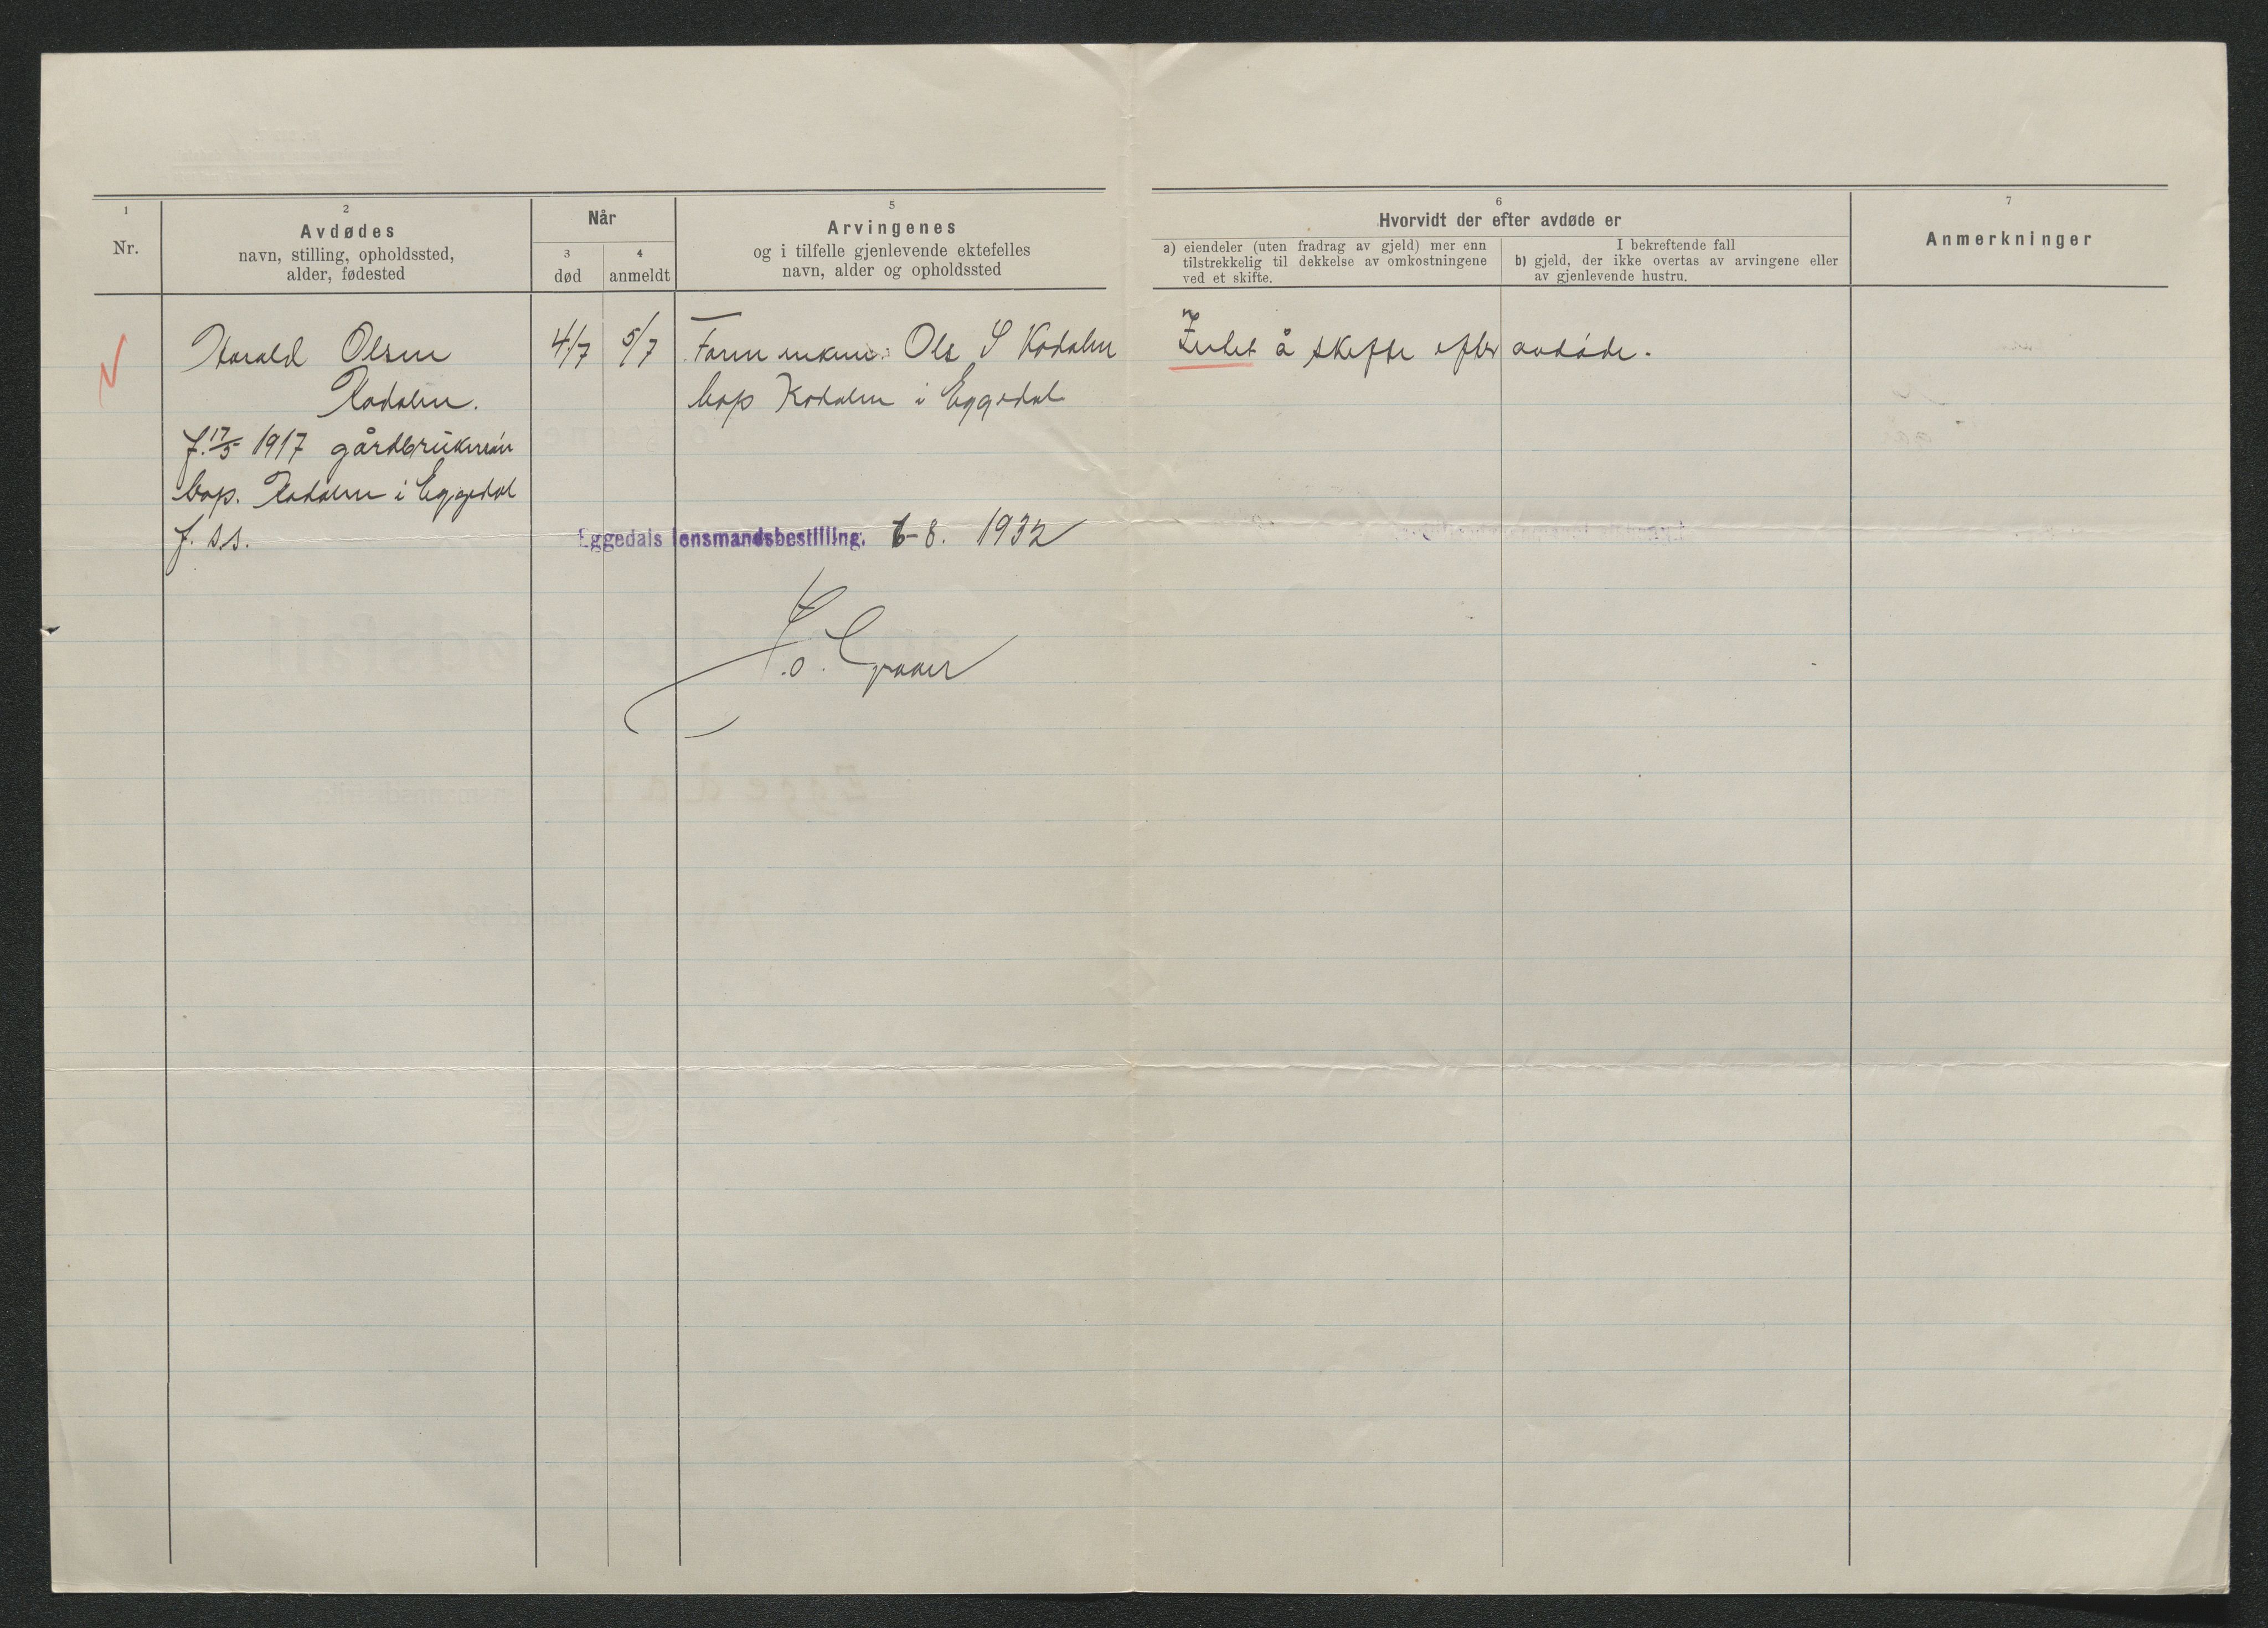 1
Nr.
2
Avdødes
navn, stilling, opholdssted,
alder, fødested
Når
3
død
4
anmeldt
5
Arvingenes
og i tilfelle gjenlevende ektefelles
navn, alder og opholdssted
6
Hvorvidt der efter avdøde er
a) eiendeler (uten fradrag av gjeld) mer enn
tilstrekkelig til dekkelse av omkostningene
ved et skifte.
I bekreftende fall
b) gjeld, der ikke overtas av arvingene eller
av gjenlevende hustru.
7
Anmerkninger
Harald Olsen
Kodalen.
f. 17/5 1917 gårdbruker
bop. Kodalen i Eggedal
f. s.s.
4/7
5/7
Ole S Kodalen
bop Kodalen i Eggedal
Intet å skifte efter avdøde.
Eggedals lensmandsbestilling. 6-8. 1932